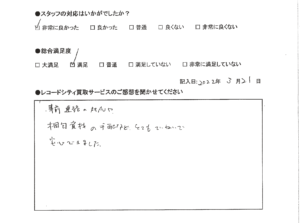 ●スタッフの対応はいかがでしたか?
☑非常に良かった □良かった □普通 □良くない □非常に良くない
●総合満足度
□大満足 ☑満足 □普通 □満足していない □非常に満足していない
記入日:2022年 3月21日
●レコードシティ買取サービスのご感想を聞かせてください
事前連絡の
梱包資材の手配など とても ていねいで